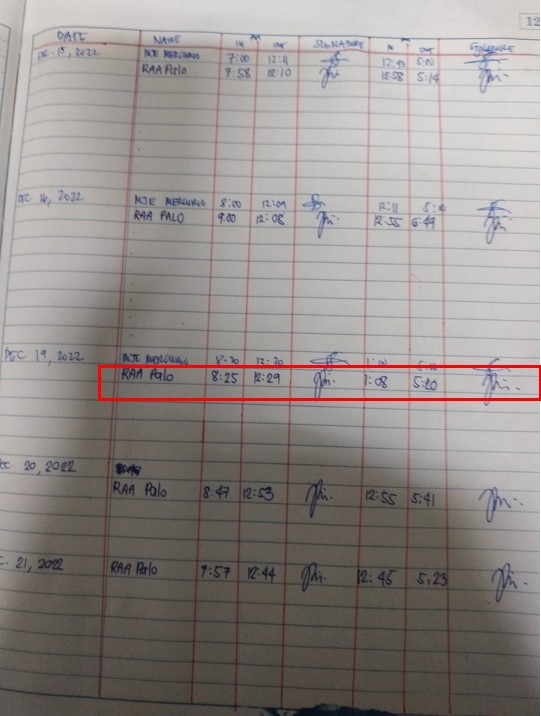 12
DATE NAME IN AM OUT SIGNATURE IN OUT SIGNATURE
15, 2022 MJE MERCURIO 7:00 12:11 12:43 5:00
RAA Palo 7:58 12:10 12:58 5:14
DEC 16, 2022 MJE MERCURIO 8:00 12:09 12:11
RAA PALO 9:00 12:08 12:55 6:49
DEC 19, 2022 MJE MERCURIO 8:20 12:20 1:00
RAA Palo 8:25 12:29 1:08 5:20
DEC 20, 2022
RAA Palo 8:47 12:53 12:55 5:41
21, 2022 RAA Palo 7:57 12:44 12:45 5:23